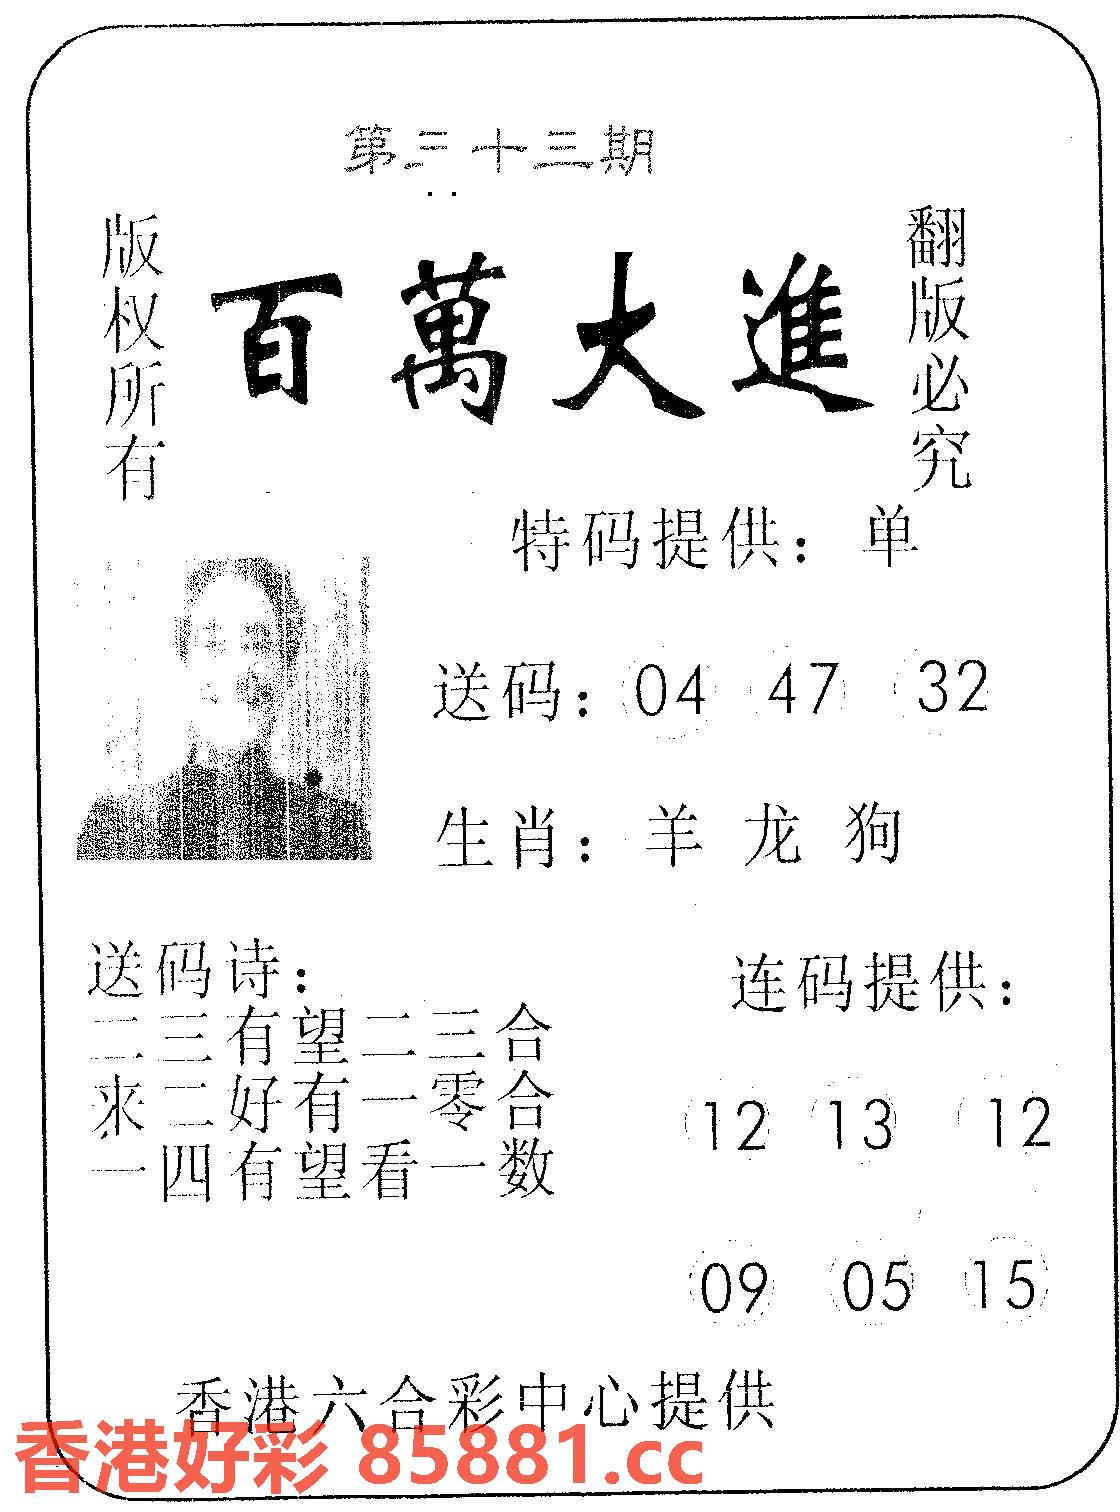 第三十三期
版权所有
百萬大進
翻版必究
特码提供：单
送码：04 47 32
生肖：羊 龙 狗
送码诗：
二三有望二三合
来二好有一零合
一四有望看一数
连码提供：
12 13 12
09 05 15
香港六合彩中心提供
香港好彩 85881.cc